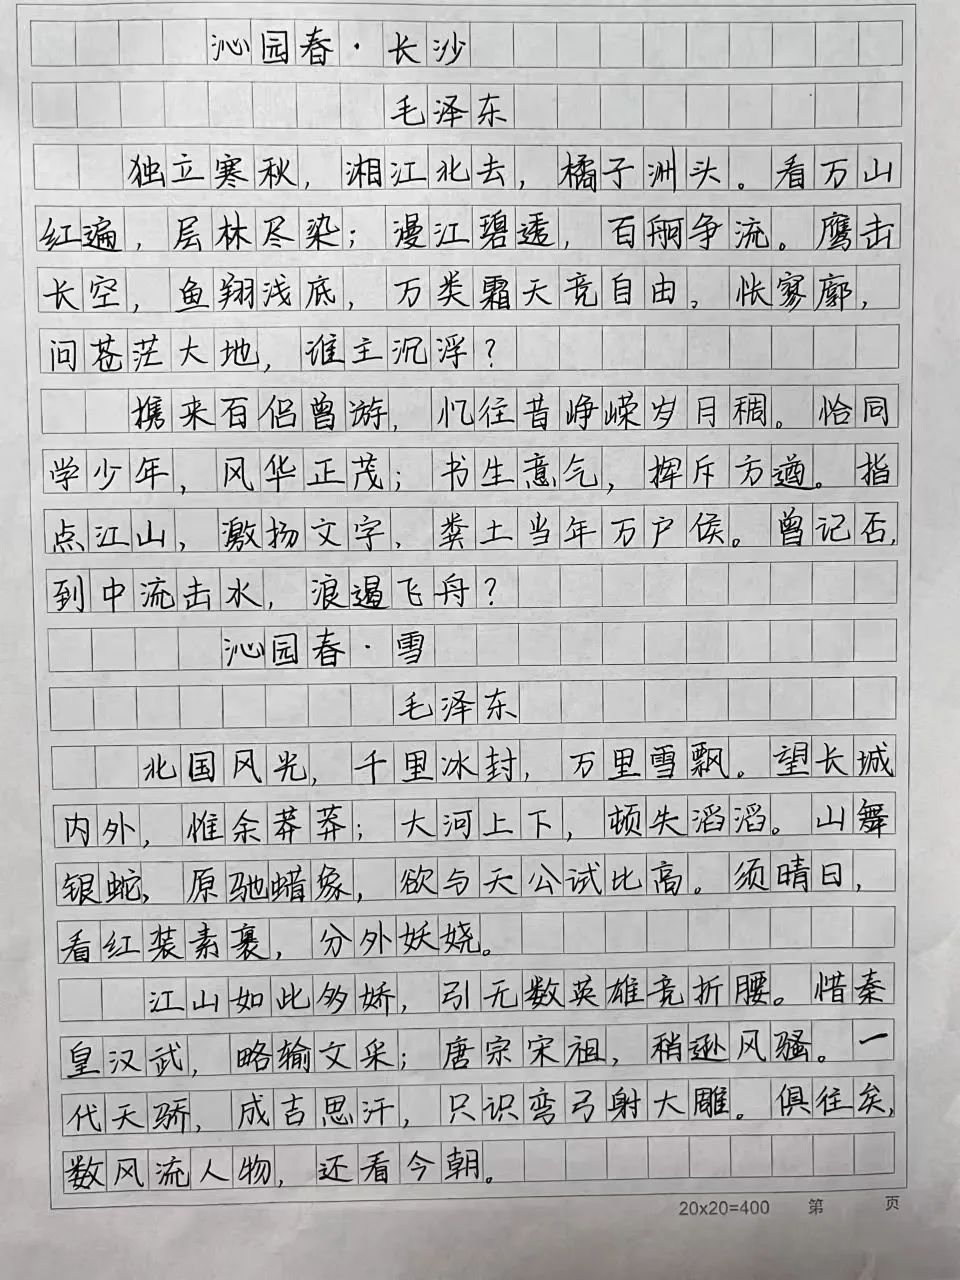 沁园春·长沙
毛泽东
独立寒秋，湘江北去，橘子洲头。看万山
红遍，层林尽染；漫江碧透，百舸争流。鹰击
长空，鱼翔浅底，万类霜天竞自由。怅寥廓，
问苍茫大地，谁主沉浮？
携来百侣曾游，忆往昔峥嵘岁月稠。恰同
学少年，风华正茂；书生意气，挥斥方遒。指
点江山，激扬文字，粪土当年万户侯。曾记否，
到中流击水，浪遏飞舟？
沁园春·雪
毛泽东
北国风光，千里冰封，万里雪飘。望长城
内外，惟余莽莽；大河上下，顿失滔滔。山舞
银蛇，原驰蜡象，欲与天公试比高。须晴日，
看红装素裹，分外妖娆。
江山如此多娇，引无数英雄竞折腰。惜秦
皇汉武，略输文采；唐宗宋祖，稍逊风骚。一
代天骄，成吉思汗，只识弯弓射大雕。俱往矣，
数风流人物，还看今朝。
20x20=400 第 页